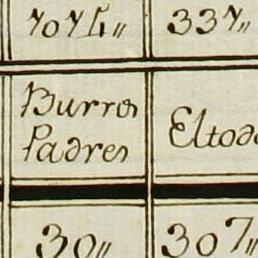 7074 337
Burros
Padres
Eltod
30 307